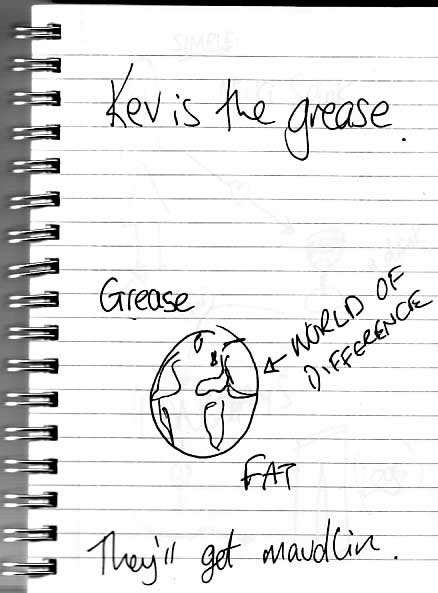 Kev is the grease.
Grease
WORLD OF
DIFFERENCE
FAT
They'll get maudlin.